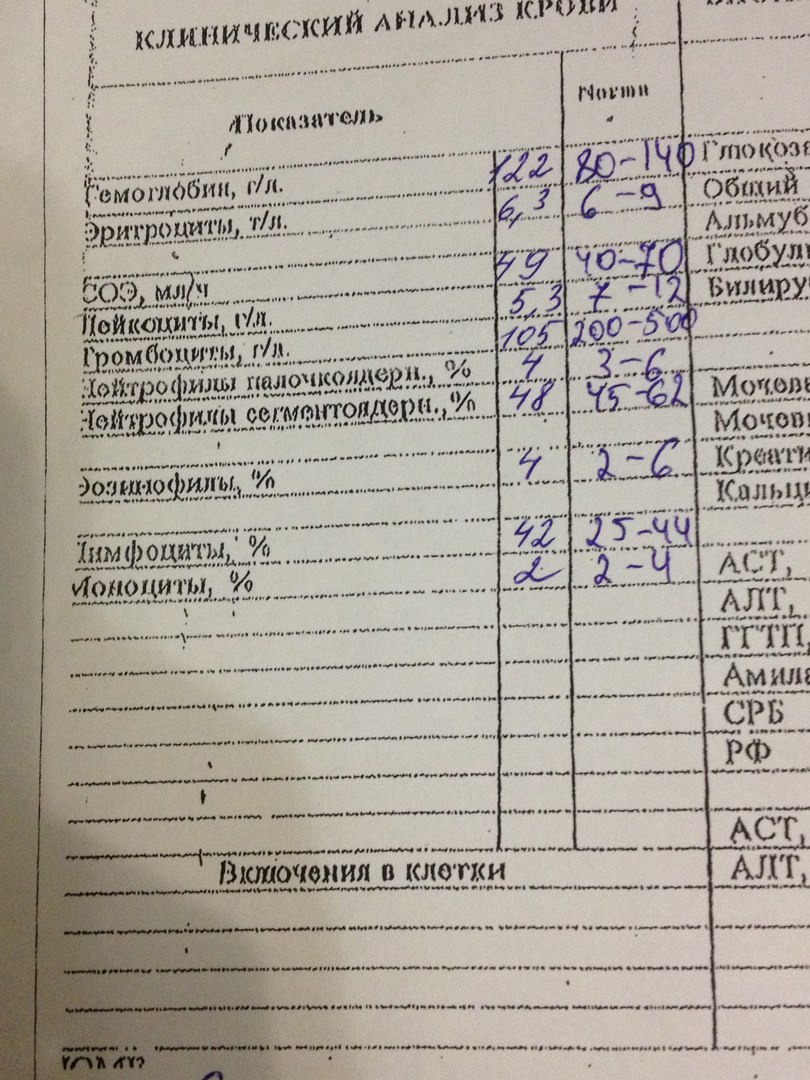 КЛИНИЧЕСКИЙ АНАЛИЗ КРОВИ
Показатель Норма
Гемоглобин, г/л. 122 80-140 Глюкоза
Эритроциты, т/л. 6,3 6-9 Общий
Альмуб
СОЭ, мл/ч 49 40-70 Глобул
Лейкоциты, г/л. 5,3 7-12 Билиру
Тромбоциты, г/л. 105 200-500
Нейтрофилы палочкоядерн., % 4 3-6
Нейтрофилы сегментоядерн.,% 48 45-62 Мочеви
Мочев
Эозинофилы, % 4 2-6 Креати
Кальци
Лимфоциты, % 42 25-44
Моноциты, % 2 2-4 АСТ,
АЛТ,
ГГТП,
Амила
СРБ
РФ
АСТ,
Включения в клетки АЛТ,